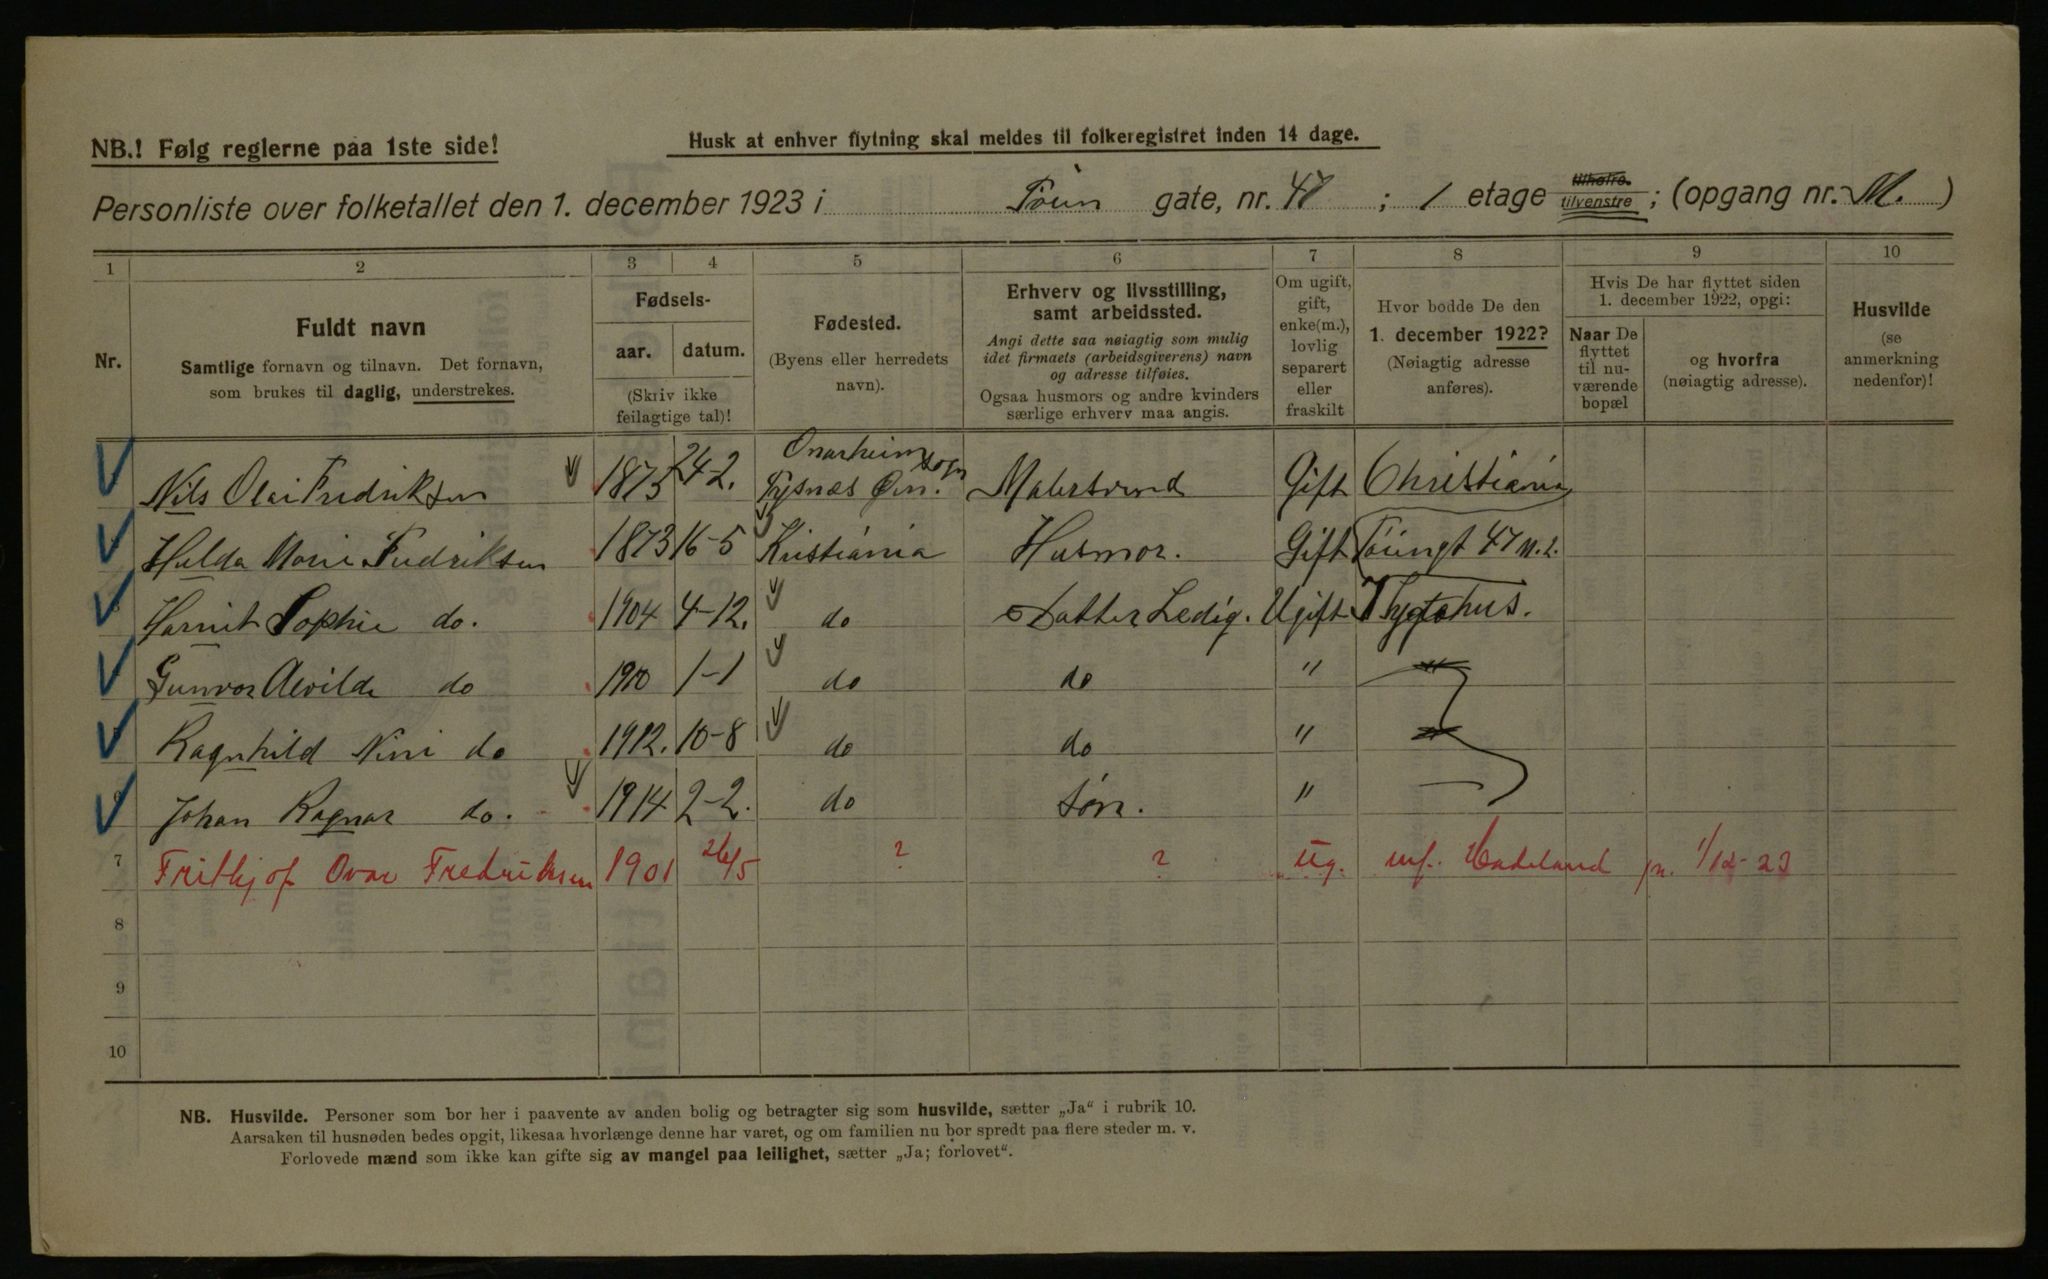 NB.! Følg reglerne paa 1ste side!
Husk at enhver flytning skal meldes til folkeregistret inden 14 dage.
Personliste over folketallet den 1. december 1923 i Töien gate, nr. 47 ; 1 etage tilhøire. tilvenstre ; (opgang nr. M. )
1 2 3 4 5 6 7 8 9 10
Nr.
Fuldt navn
Samtlige fornavn og tilnavn. Det fornavn,
som brukes til daglig, understrekes.
Fødsels-
aar. datum.
(Skriv ikke
feilagtige tal)!
Fødested.
(Byens eller herredets
navn).
Erhverv og livsstilling,
samt arbeidssted.
Angi dette saa nøiagtig som mulig
idet firmaets (arbeidsgiverens) navn
og adresse tilføies.
Ogsaa husmors og andre kvinders
særlige erhverv maa angis.
Om ugift,
gift,
enke(m.),
lovlig
separert
eller
fraskilt
Hvor bodde De den
1. december 1922?
(Nøiagtig adresse
anføres).
Hvis De har flyttet siden
1. december 1922, opgi:
Naar De
flyttet
til nu-
værende
bopæl
og hvorfra
(nøiagtig adresse).
Husvilde
(se
anmerkning
nedenfor)!
Onarheim sogn
Nils Olai Fredriksen 1873 24-2. Tysnæs Gift Christiania
Hulda Marie Fredriksen 1873 16-5 Kristiania Husmor. Gift Töiengt 47 M. 2.
Harriet Sophie do. 1904 4-12. do Datter Ledig. Ugift
Gunvor Alvilde do 1910 1-1 do do "
Ragnhild Nini do 1912. 10-8 do do "
6 Johan Ragnar do. 1914 2-2. do Søn. "
7 Frithjof Ovar Fredriksen 1901 26/5 ? ? ug. Hadeland 1/12-23
8
9
10
NB. Husvilde. Personer som bor her i paavente av anden bolig og betragter sig som husvilde, sætter „Ja" i rubrik 10.
Aarsaken til husnøden bedes opgit, likesaa hvorlænge denne har varet, og om familien nu bor spredt paa flere steder m. v.
Forlovede mænd som ikke kan gifte sig av mangel paa leilighet, sætter „Ja; forlovet".